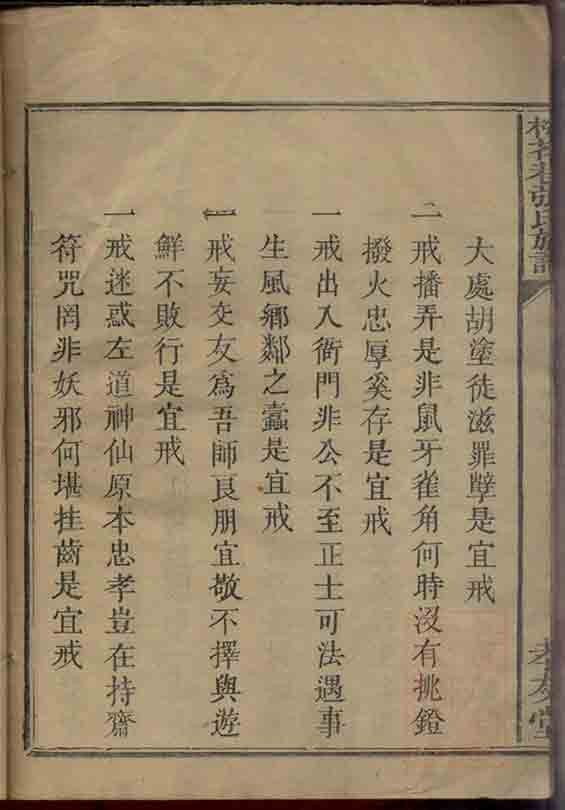 大處胡塗徒滋罪孽是宜戒
一戒播弄是非鼠牙雀角何時沒有挑鐙
撥火忠厚奚存是宜戒
一戒出入衙門非公不至正士可法遇事
生風鄉鄰之蠹是宜戒
一戒妄交友爲吾師良朋宜敬不擇與遊
鮮不敗行是宜戒
一戒迷惑左道神仙原本忠孝豈在持齋
符咒罔非妖邪何堪挂齒是宜戒
張氏族譜
孝友堂